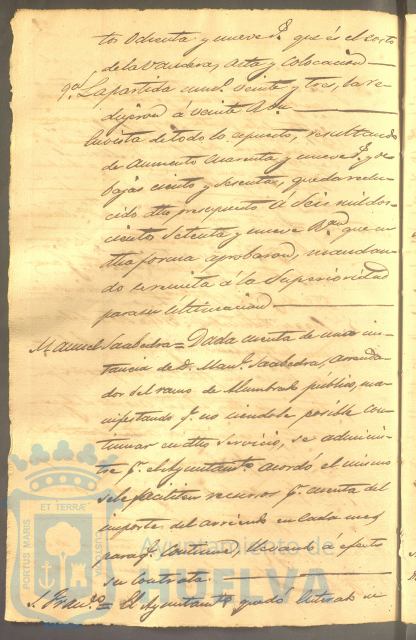 tos ochenta y nueve r.s que es el costo
de la Vandera, Asta y Colocacion
9.a La partida num.o veinte y tres, la re-
dujeron á veinte R.on
En vista de todo lo espuesto, resultando
de aumento cuarenta y nueve r.s y de
bajas ciento y sesenta, queda redu-
cido dho presupuesto á Seis mil dos-
cientos setenta y nueve R.on que en
dha forma aprobaron, mandan-
do se remita á la Superioridad
para su ultimacion
Manuel Saabedra = Dada cuenta de una ins-
tancia de D. Man.l Saabedra, arrenda-
dor del ramo de Alumbrado público, ma-
nifestando q.e no siendole posible con-
tinuar en dho servicio, se adminis-
tre p.r el Ayuntam.to acordó el mismo
se le faciliten recursos p.r cuenta del
importe del arriendo en cada mes
para q.e continue llevando á efecto
su contrata
S. Fran.co = El Ayuntam.to
PORTUS MARIS
ET TERRÆ
CUSTODIA
Ayuntamiento de
HUELVA